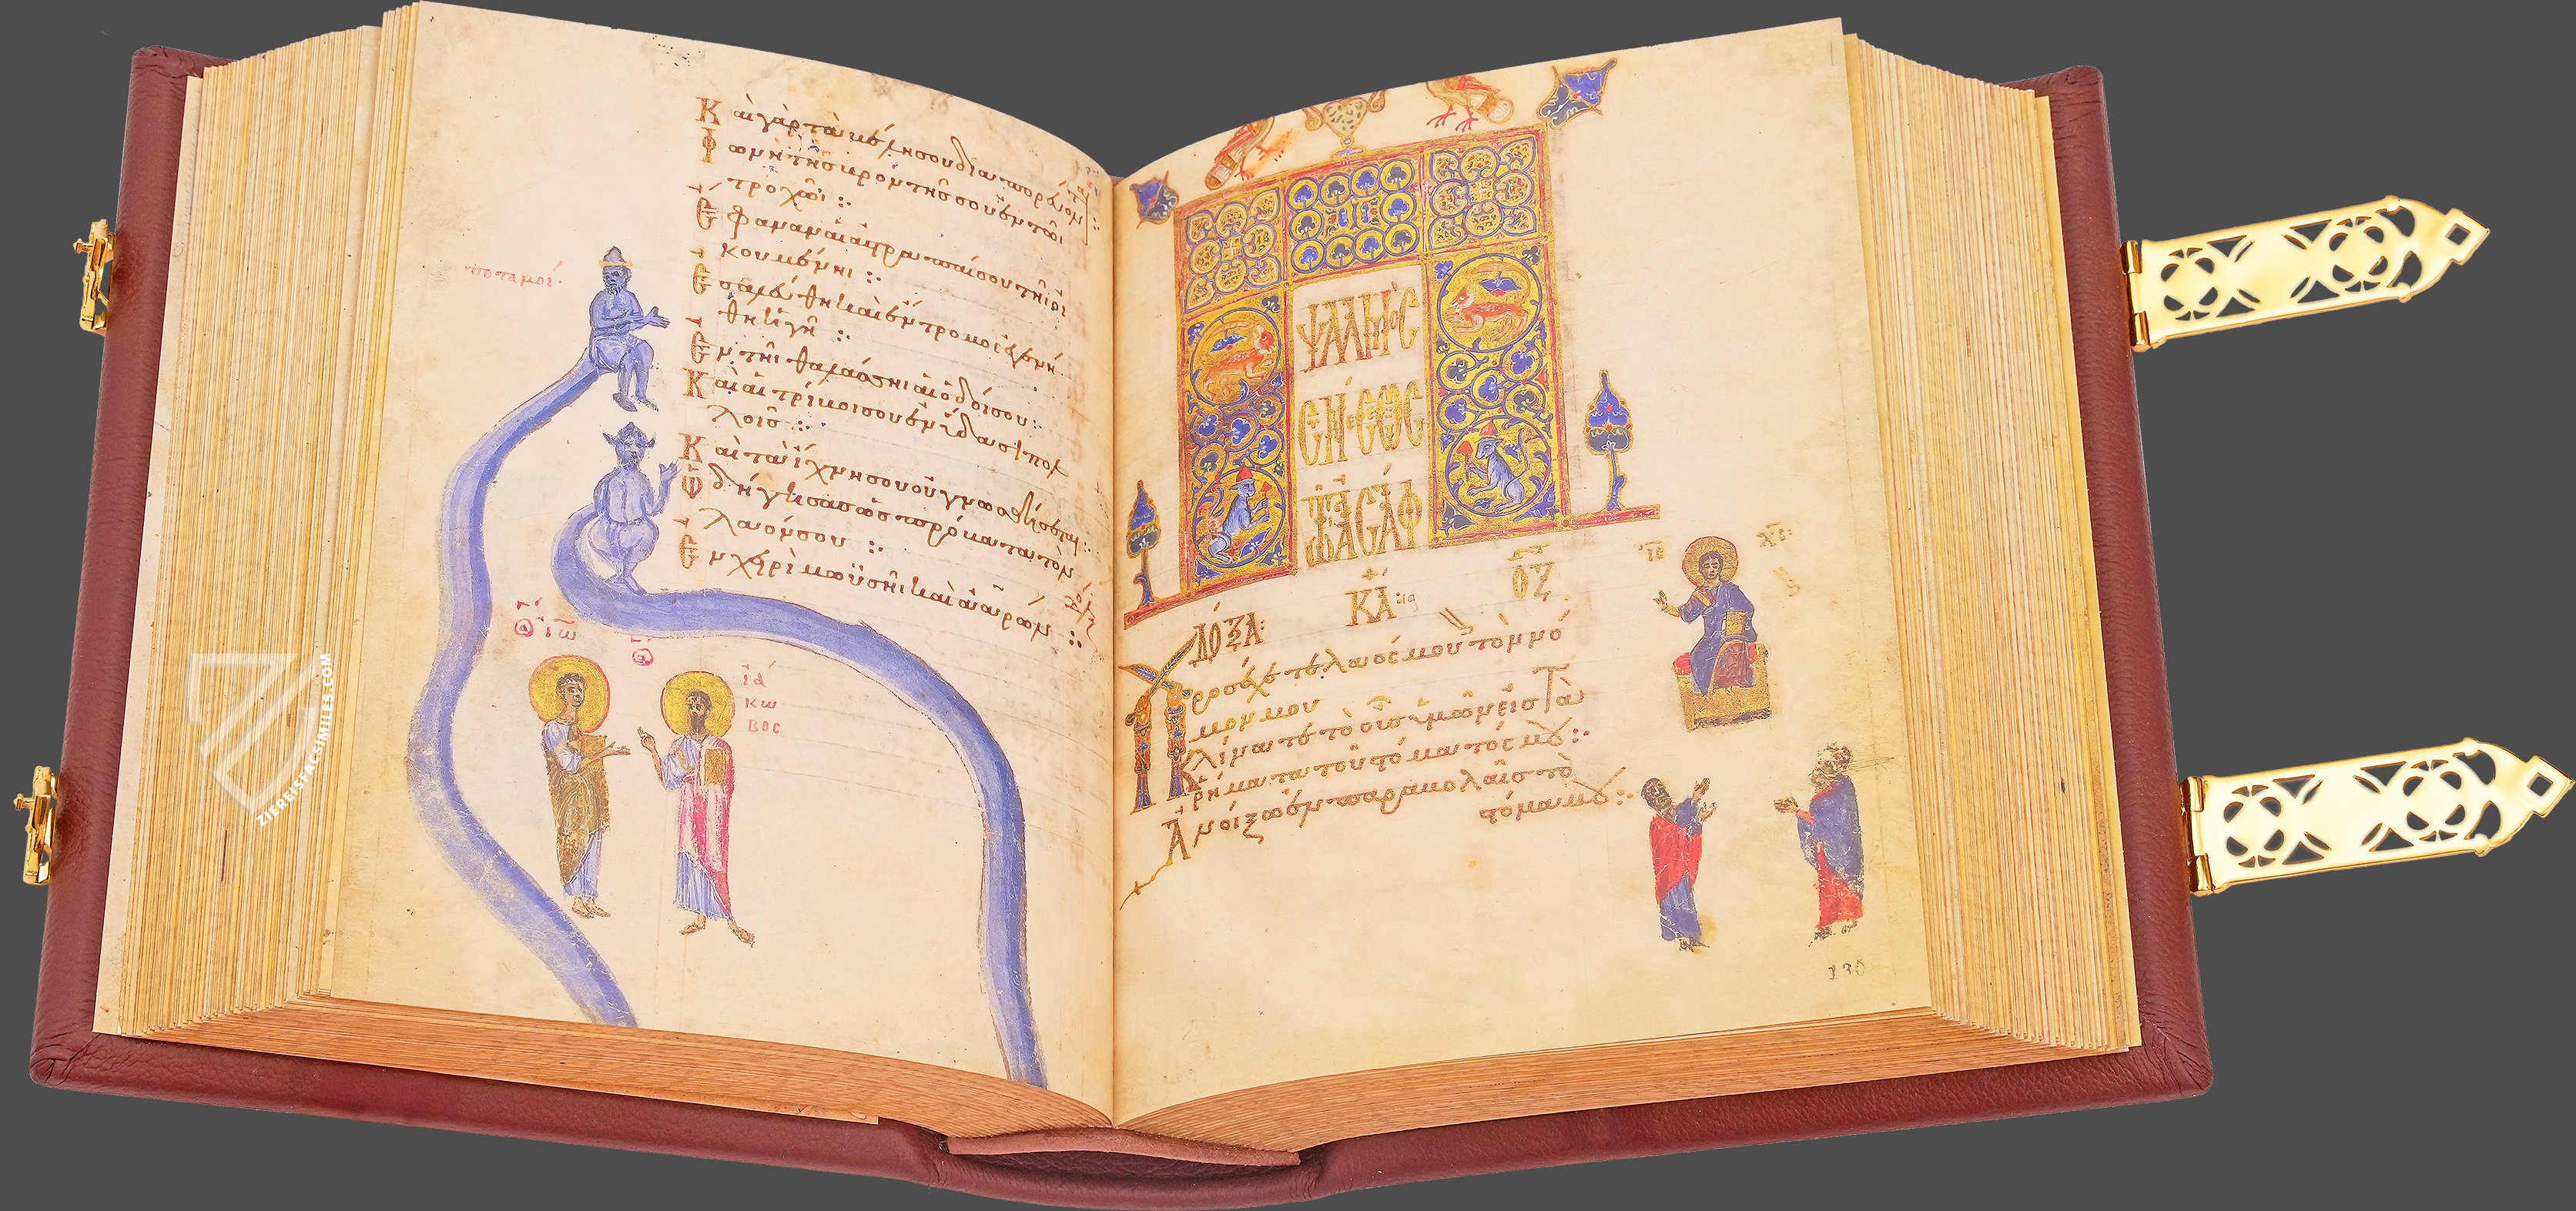 Καὶ γὰρ τὰ βέλη σου διαπορεύονται:
Φωνὴ τῆς βροντῆς σου ἐν τῶι
τροχῶι :
Ἔφαναν αἱ ἀστραπαί σου τῆι οἰ
κουμένηι :
Ἐσαλεύθη καὶ ἔντρομος ἐγενή
θη ἡ γῆ :
Ἐν τῆι θαλάσσηι αἱ ὁδοί σου:
Καὶ αἱ τρίβοι σου ἐν ὕδασι πολ
λοῖς :
Καὶ τὰ ἴχνη σου οὐ γνωσθήσεται:
Ὡδήγησας ὡς πρόβατα τὸν
λαόν σου :
Ἐν χειρὶ μωϋσῆι καὶ ἀαρών :
ποταμοί
ΙΩ
ΙΑ
ΚΩ
ΒΟC
ΨΑΛΜΟC
ΕΝ CΕΩC
ΑCΑΦ
ΔΟΞΑ:
ΚΑ
ΟΖ
Προσέχετε λαός μου τὸν νό
μον μου
Κλίνατε τὸ οὖς ὑμῶν εἰς τὰ
ῥήματα τοῦ στόματός μου:
Ἀνοίξω ἐν παραβολαῖς τὸ
στόμα μου:
ΙC
ΧC
130
ZIEREISFACSIMILES.COM